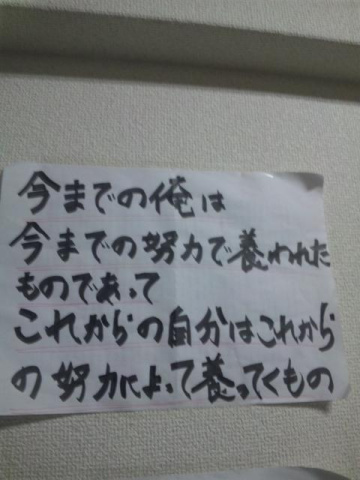 今までの俺は
今までの努力で養われた
ものであって
これからの自分はこれから
の努力によって養ってくもの